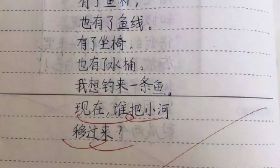 有了鱼竿，
也有了鱼线。
有了坐椅，
也有了水桶，
我想钓来一条鱼。
现在，谁把小河
移过来？